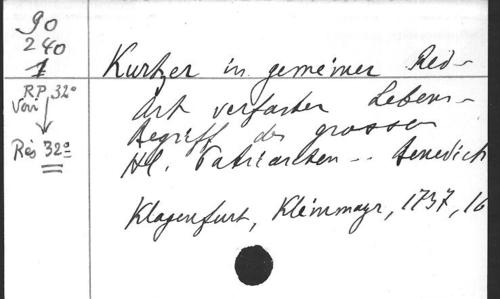 90
240
1
R.P. 32°
Voir
Rés 32°
Kurtzer in gemeiner Red-
Art verfaster Lebens-
begriff des grossen
Hl. Patriarchen -- Benedict
Klagenfurt, Kleinmayr, 1737, 16